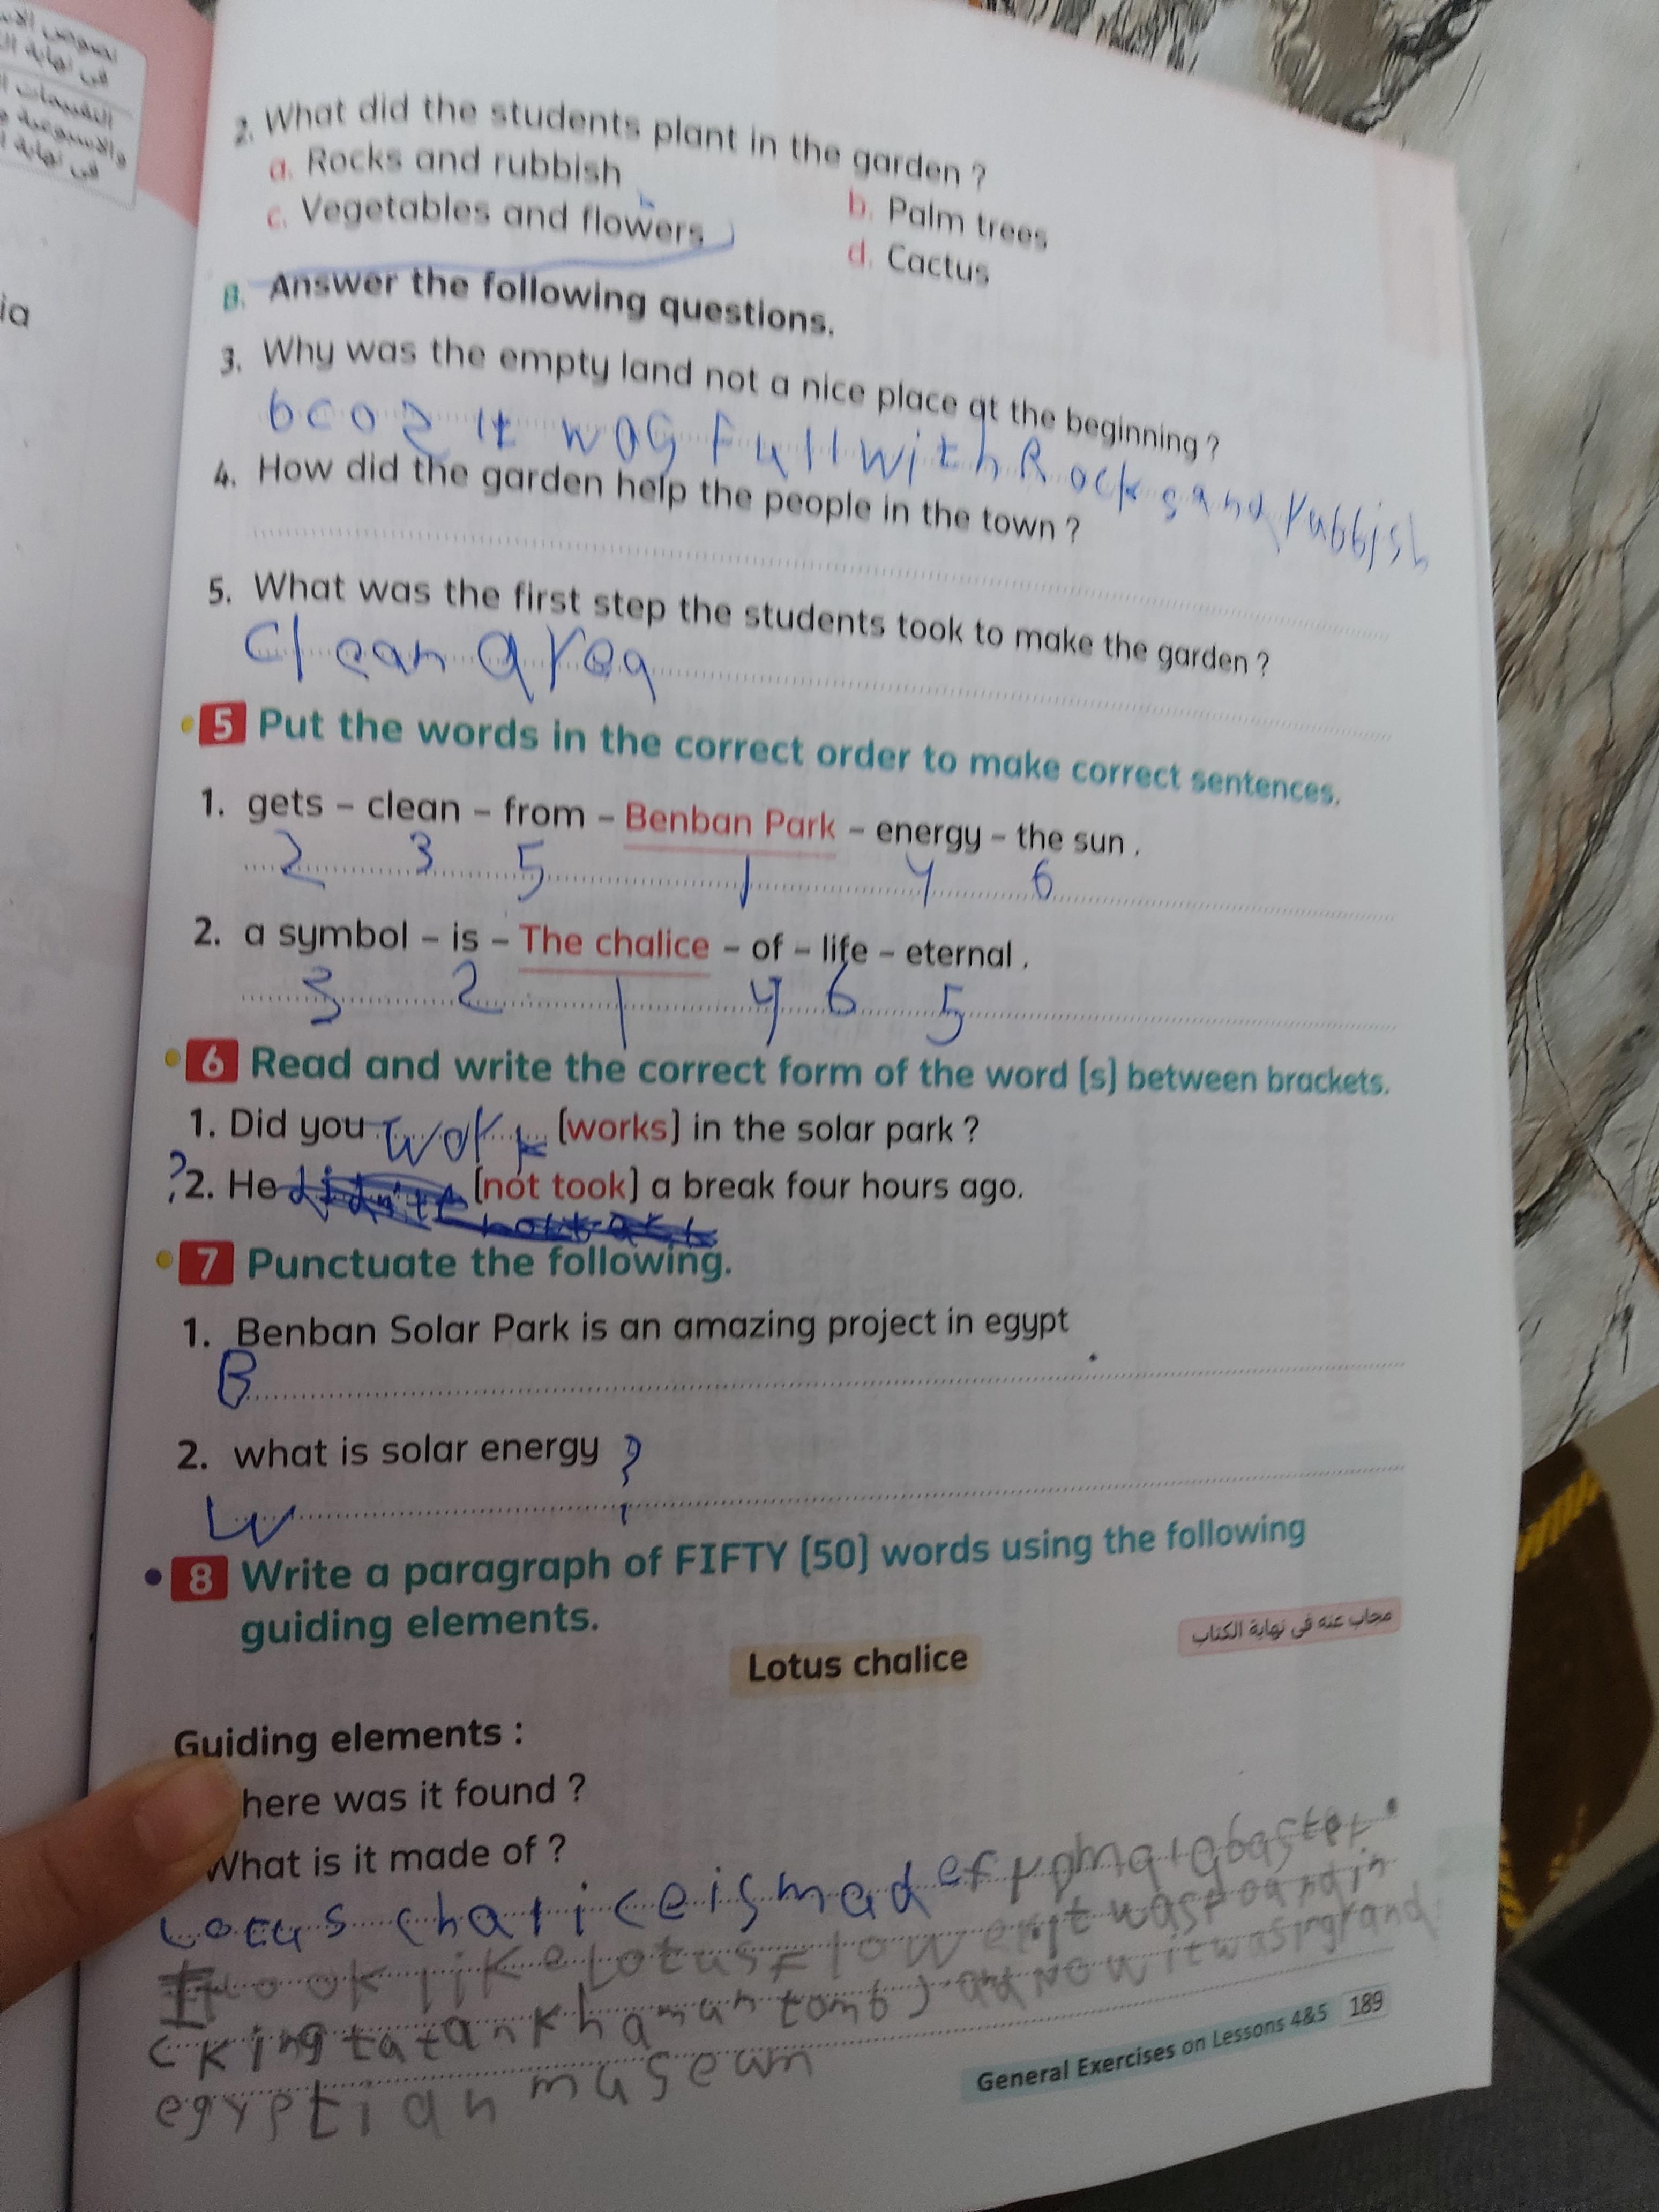 2. What did the students plant in the garden ?
a. Rocks and rubbish
b. Palm trees
c. Vegetables and flowers
d. Cactus
B. Answer the following questions.
3. Why was the empty land not a nice place at the beginning ?
bcoz it was Full with Rocks and rubbish
4. How did the garden help the people in the town ?
5. What was the first step the students took to make the garden ?
clean area
5 Put the words in the correct order to make correct sentences.
1. gets – clean – from – Benban Park – energy – the sun .
2 3 5 1 4 6
2. a symbol – is – The chalice – of – life – eternal .
3 2 1 4 6 5
6 Read and write the correct form of the word (s) between brackets.
1. Did you work (works) in the solar park ?
? 2. He (not took) a break four hours ago.
7 Punctuate the following.
1. Benban Solar Park is an amazing project in egypt
B .
2. what is solar energy ?
W ?
8 Write a paragraph of FIFTY (50) words using the following
guiding elements.
مجاب عنه فى نهاية الكتاب
Lotus chalice
Guiding elements :
here was it found ?
What is it made of ?
Lotus chalice is mad
look like Lotus Flower it was Found in
king tatankhaman tomb) and Now it was in grand
egyptian museum
General Exercises on Lessons 4&5 189
ia